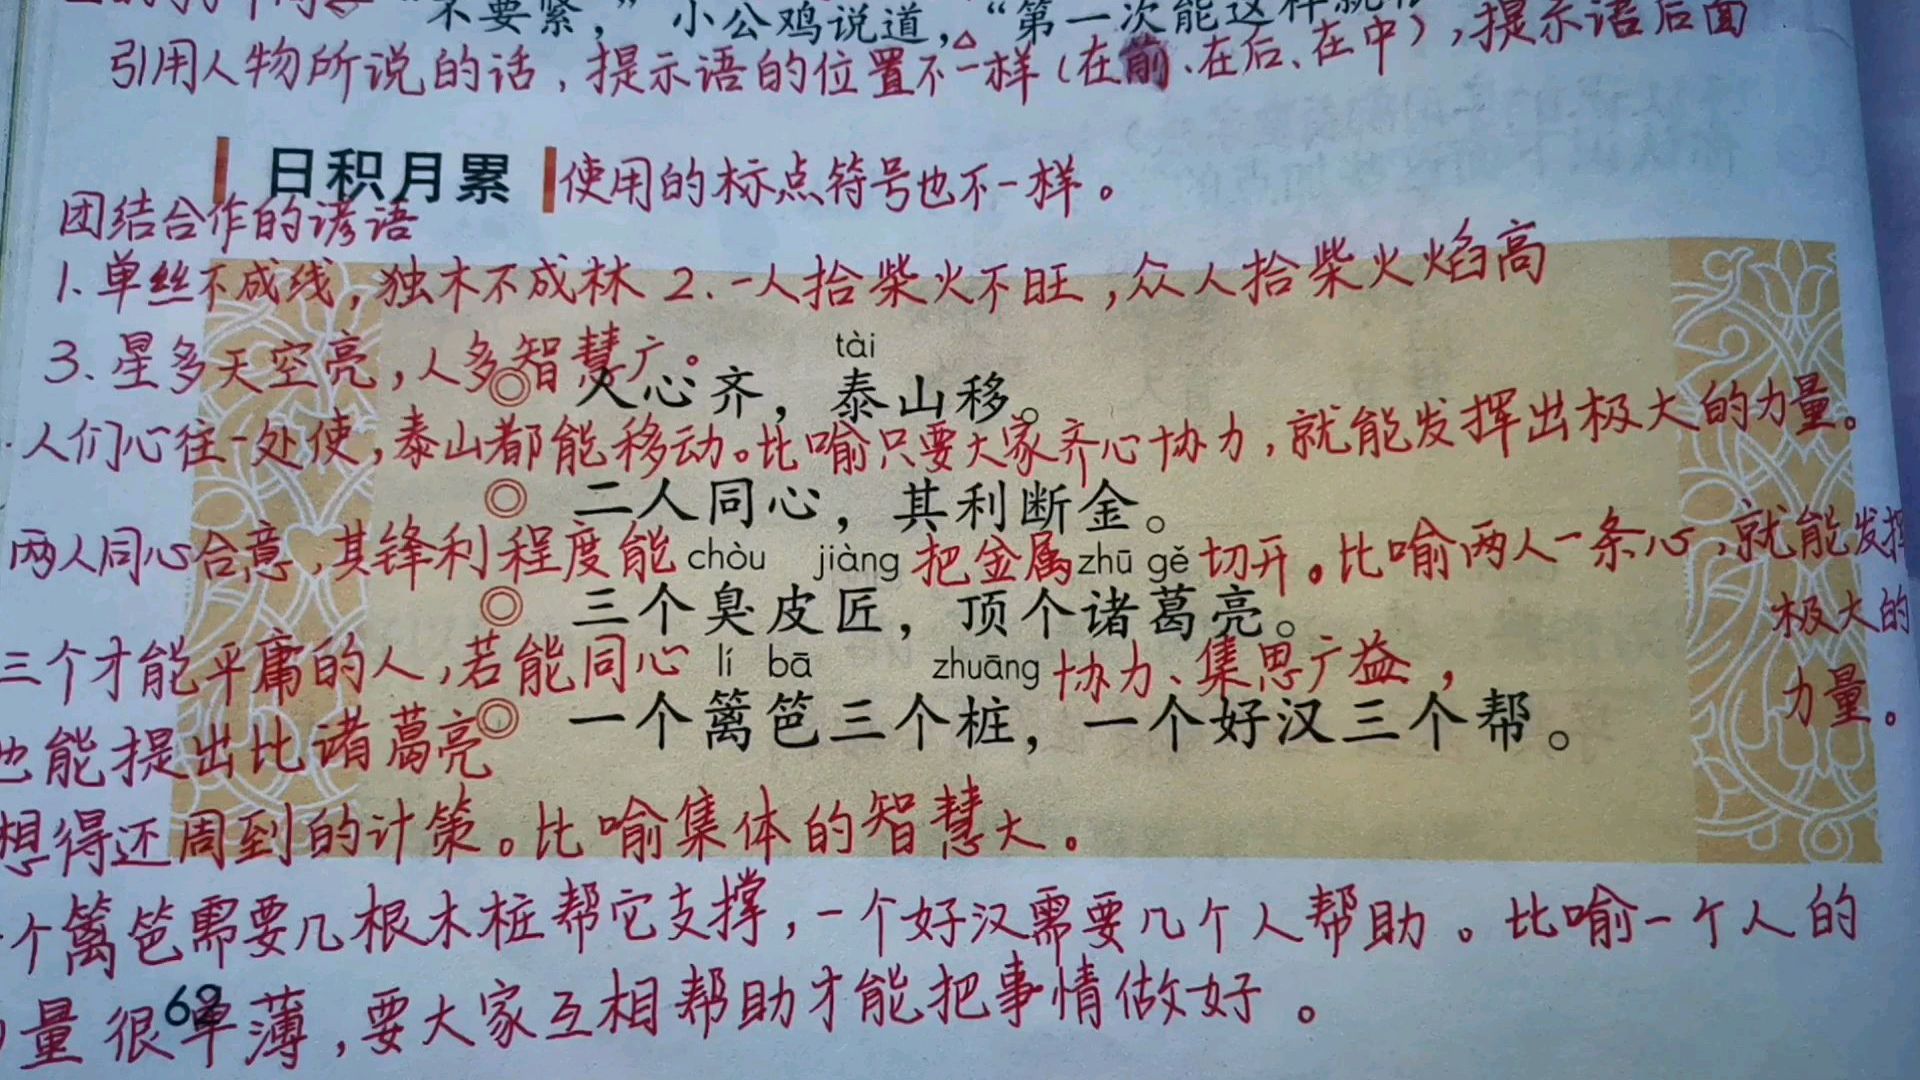 “不要紧，”小公鸡说道，“第一次能这样
引用人物所说的话，提示语的位置不一样（在前、在后、在中），提示语后面
日积月累
使用的标点符号也不一样。
团结合作的谚语
1.单丝不成线，独木不成林 2.一人拾柴火不旺，众人拾柴火焰高
3、星多天空亮，人多智慧广。
tài
◎ 人心齐，泰山移。
人们心往一处使，泰山都能移动。比喻只要大家齐心协力，就能发挥出极大的力量。
◎ 二人同心，其利断金。
两人同心合意，其锋利程度能把金属切开。比喻两人一条心，就能发挥
极大的
力量。
chòu jiàng zhū gě
◎ 三个臭皮匠，顶个诸葛亮。
三个才能平庸的人，若能同心协力、集思广益，
lí bā zhuāng
◎ 一个篱笆三个桩，一个好汉三个帮。
也能提出比诸葛亮
想得还周到的计策。比喻集体的智慧大。
个篱笆需要几根木桩帮它支撑，一个好汉需要几个人帮助。比喻一个人的
量很单薄，要大家互相帮助才能把事情做好。